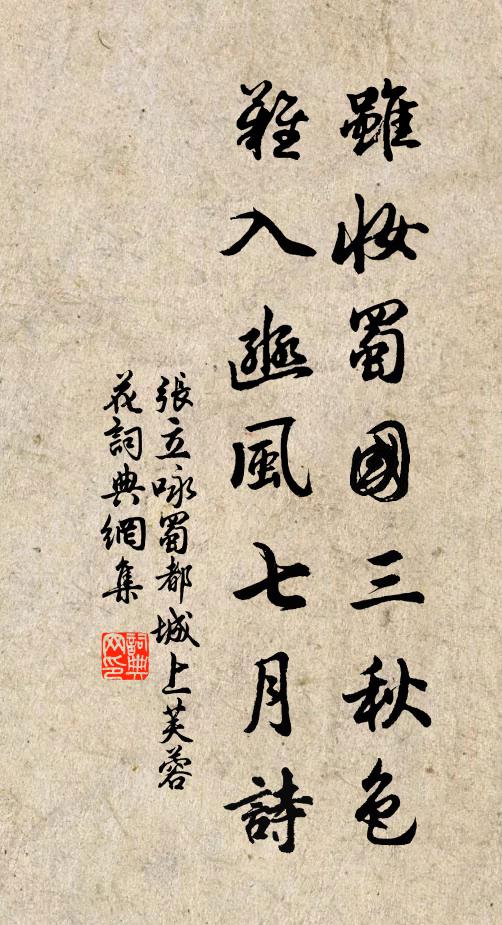 雖妝蜀國三秋色
難入豳風七月詩
張立咏蜀都城上芙蓉
花詞典網集
詞典
网印